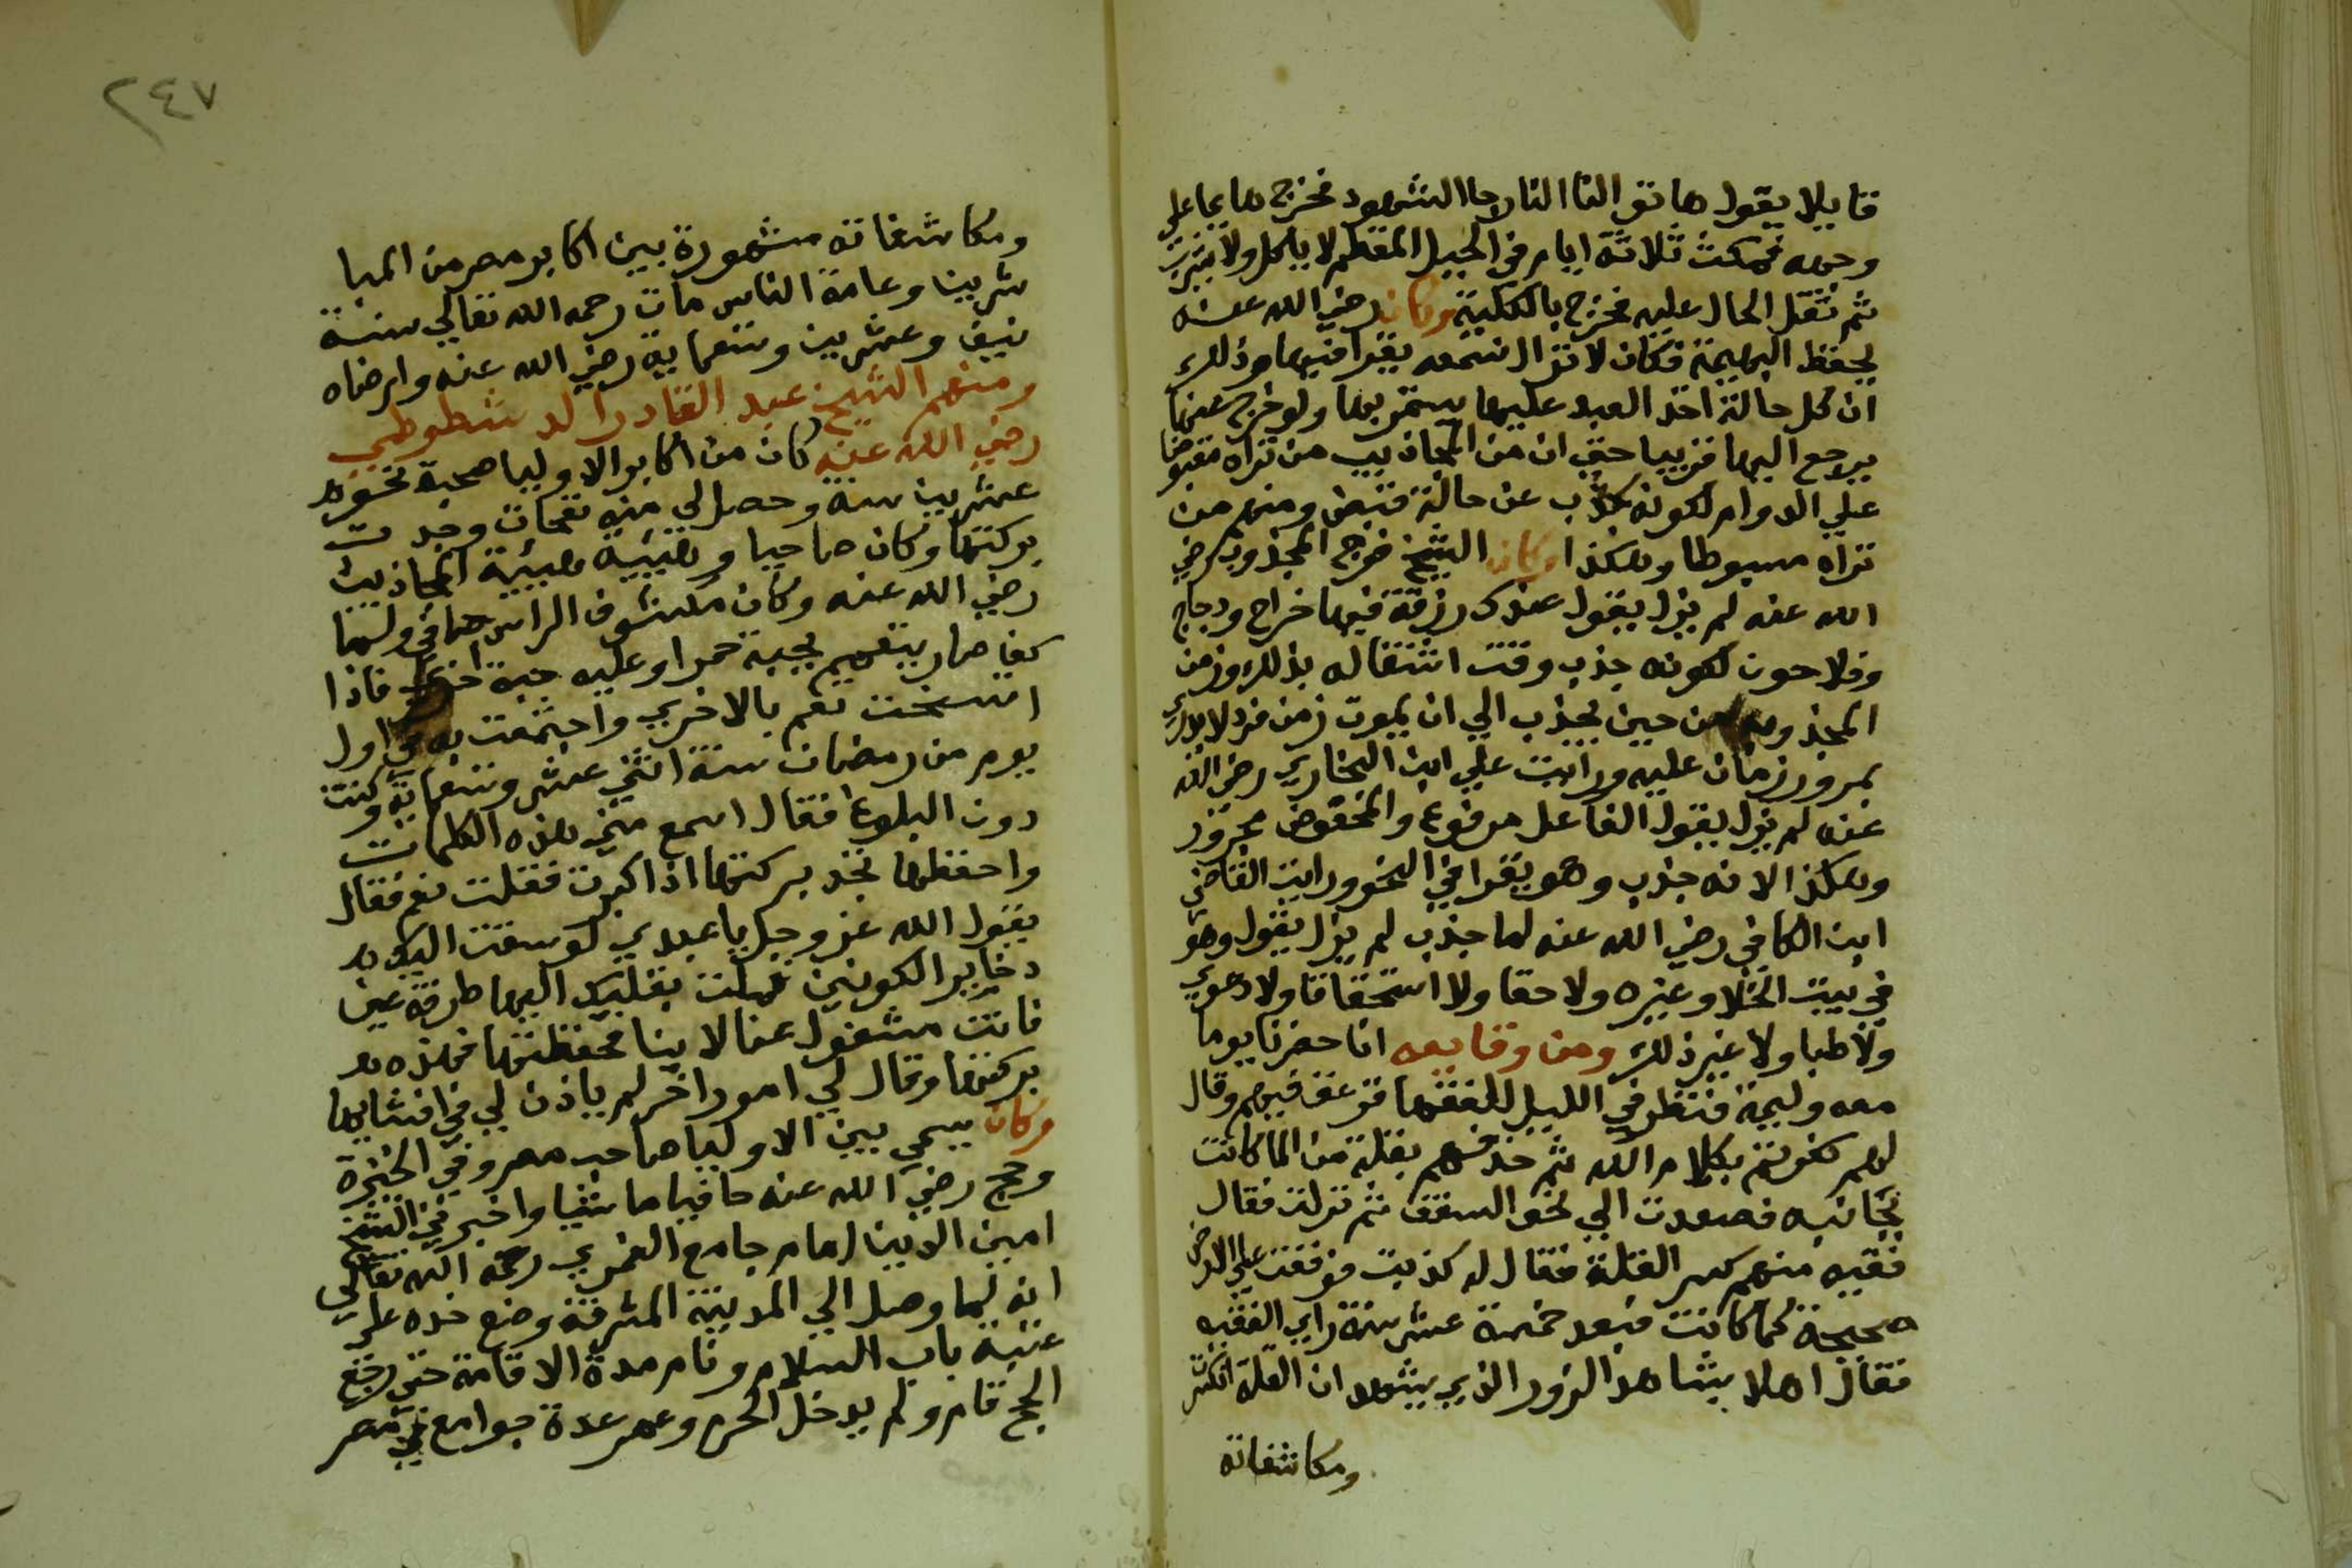 قايلا يقول هاتو النا النار جا الشهود فخرج هايما علي
وجهه فمكث ثلاثة ايام في الجبل المقطم لا ياكل ولا يشرب
ثم ثقل الحال عليه فخرج بالكلية وكان رضي الله عنه
يحفظ البهيمة فكان لا تزال تسمعه يقرا فيها وذلك
ان كل حالة اخذ العبد عليها يستمر بها ولو خرج عنها
يرجع اليها قريبا حتي ان من المجاذيب من تراه مقبوضا
علي الدوام لكونه جذب عن حالة قبض ومنهم من
تراه مبسوطا وهكذا وكان الشيخ فرج المجذوب رضي
الله عنه لم يزل يقول عندك رزقة فيها خراج ودجاج
وفلاحون لكونه جذب وقت اشتغاله بذلك وزمن
المجذوب من حين يجذب الي ان يموت زمن فرد لا يدري
بمرور زمان عليه ورايت علي ابن البخاري رضي الله
عنه لم يزل يقول الفاعل مرفوع والمخفوض مجرور
وهكذا لانه جذب وهو يقرا في النحو ورايت القاضي
ابن الكافي رضي الله عنه لما جذب لم يزل يقول وهو
في بيت الخلا وغيره ولا حقا ولا استحقاقا ولا دعوي
ولا طبا ولا غير ذلك ومن وقايعه انا حضرنا يوما
معه وليمة فنظر في الليل للفقها فزعق فيهم وقال
لهم كفرتم بكلام الله ثم حذفهم بقلة من الما كانت
بجانبه فصعدت الي نحو السقف ثم نزلت فقال
فقيه منهم كسر القلة فقال له كذبت فوقفت علي الارض
صحيحة كما كانت فبعد خمسة عشر سنة راي الفقيه
فقال اهلا بشاهد الزور الذي يشهد ان القلة انكسرت
ومكاشفاته
٢٤٧
ومكاشفاته مشهورة بين اكابر مصر من المبا
شرين وعامة الناس مات رحمه الله تعالي سنة
نيف وعشرين وتسعماية رضي الله عنه وارضاه
ومنهم الشيخ عبد القادر الدشطوطي
رضي الله عنه كان من اكابر الاوليا صحبته نحو
عشرين سنة وحصل لي منه نفحات وجدت
بركتها وكان صاحيا وهيئته هيئة المجاذيب
رضي الله عنه وكان مكشوف الراس حافي ولما
كف صار يتعمم بجبة حمرا وعليه جبة اخري فاذا
اتسخت تعم بالاخري واجتمعت به في اول
يوم من رمضان سنة اثني عشر وتسعماية وكنت
دون البلوغ فقال اسمع مني هذه الكلمات
واحفظها تجد بركتها اذا كبرت فقلت نعم فقال
يقول الله عز وجل يا عبدي لو سقت اليك
دخاير الكونين فملت بقلبك اليها طرفة عين
فانت مشغول عنا لا بنا فحفظتها فهذه
بركتها وقال لي امورا اخر لم ياذن لي في افشايها
وكان يسمي بين الاوليا صاحب مصر وفي الجيزة
وحج رضي الله عنه حافيا ماشيا واخبرني الشيخ
امين الدين امام جامع الغمري رحمه الله تعالي
انه لما وصل الي المدينة المشرفة وضع خده علي
عتبة باب السلام ونام مدة الاقامة حتي رجع
الحج قام ولم يدخل الحرم وعمر عدة جوامع في مصر